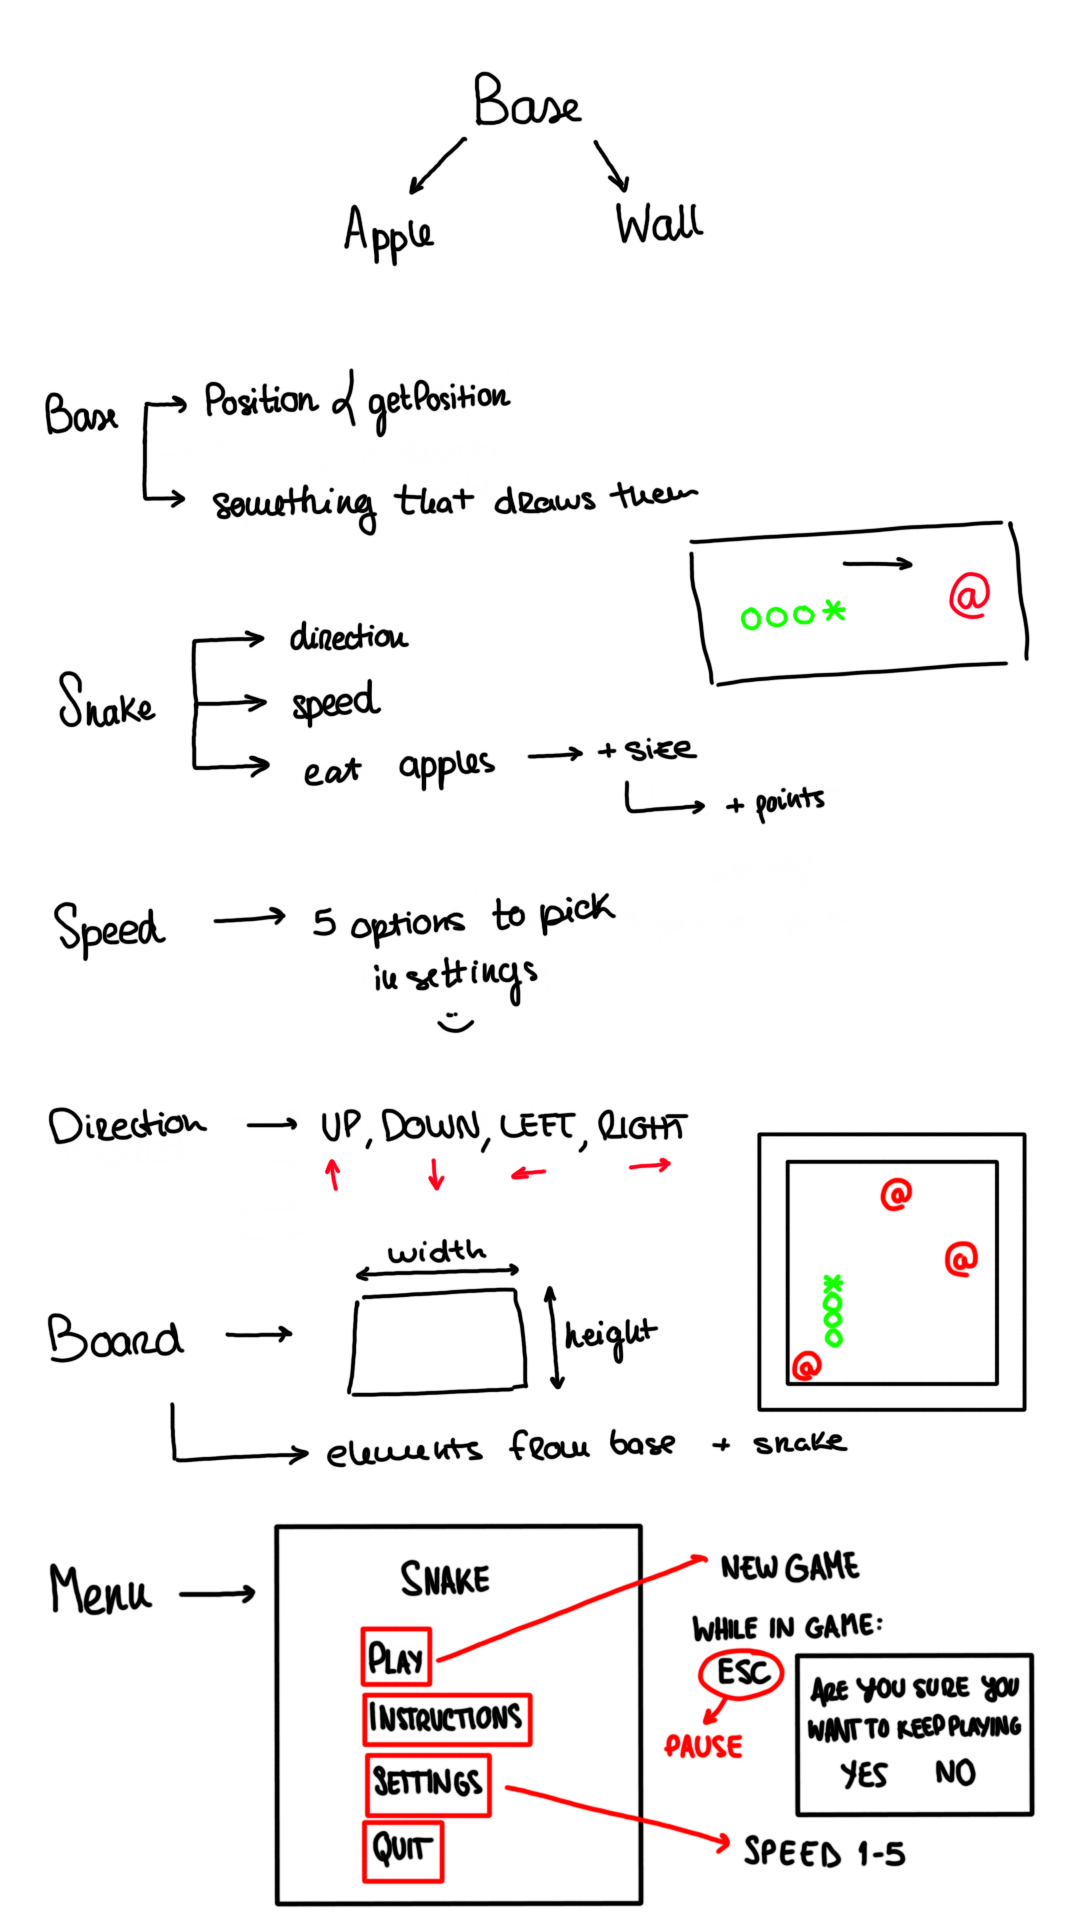 Base
Apple
Wall
Base
Position & getPosition
something that draws them
@
ooo*
direction
Snake
speed
eat apples
+ size
+ points
Speed
5 options to pick
in settings
Direction
UP, DOWN, LEFT, RIGHT
@
@
*
o
o
o
@
width
Board
height
elements from base + snake
Menu
SNAKE
PLAY
INSTRUCTIONS
SETTINGS
QUIT
NEW GAME
WHILE IN GAME:
ESC
PAUSE
ARE YOU SURE YOU
WANT TO KEEP PLAYING
YES NO
SPEED 1-5